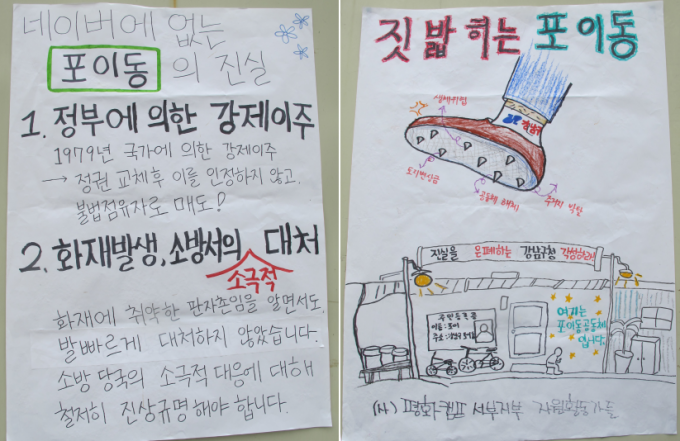 네이버에 없는
포이동 의 진실
1. 정부에 의한 강제이주
1979년 국가에 의한 강제이주
→ 정권 교체후 이를 인정하지 않고,
불법점유자로 매도!
2. 화재발생, 소방서의 대처
소극적
화재에 취약한 판자촌임을 알면서도,
발빠르게 대처하지 않았습니다.
소방 당국의 소극적 대응에 대해
철저히 진상규명 해야 합니다.
짓밟히는 포이동
생계위협
강남구
토지변상금
공동체 해체
주거지 박탈
진실을 은폐하는 강남구청 각성하라!
주민등록증
이름 : 포이
주소 :
여기는
포이동공동체
입니다.
(사) 평화캠프 서부지부 자원활동가들